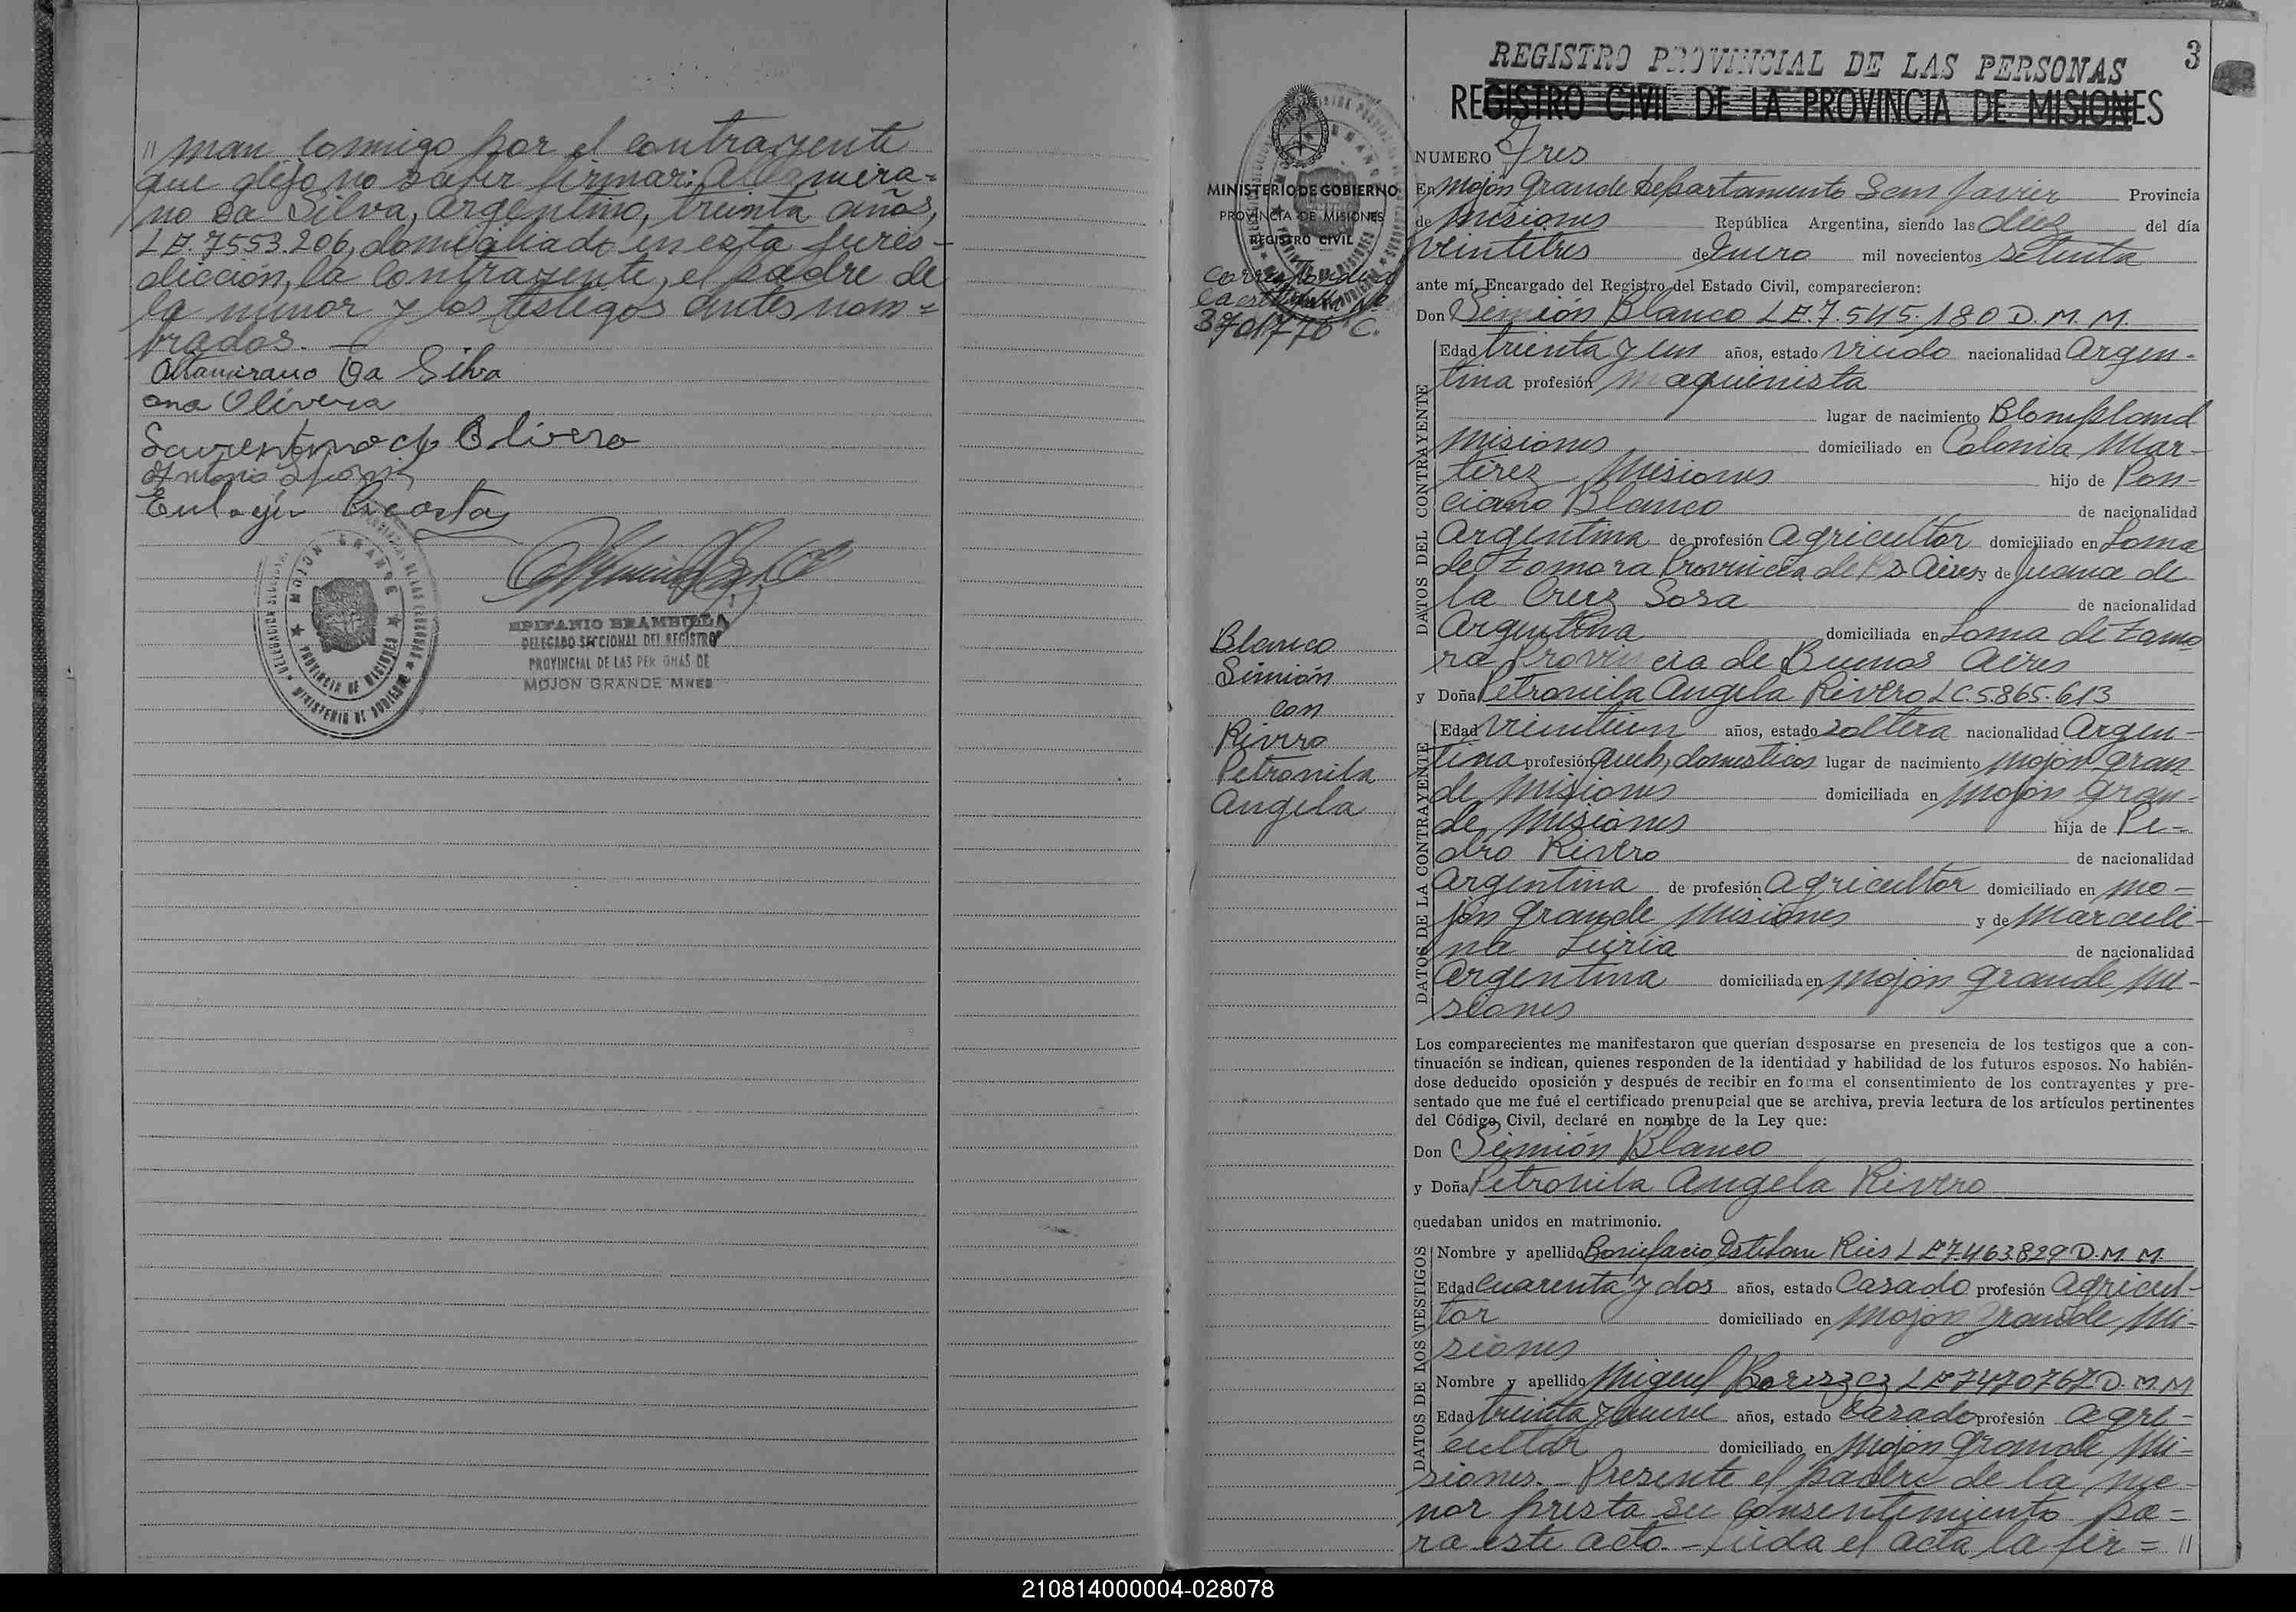 " man conmigo por el contrayente
que dijo no saber firmar: Altamira=
no Da Silva, argentino, treinta años,
L E. 7553.206, domiciliado en esta juris-
dicción, la contrayente, el padre de
la menor y los testigos antes nom=
brados. —
Altamirano Da Silva
ana Olivera
Olivera
Antonio
Eulogio Acosta
MOJON GRANDE
PROVINCIA DE MISIONES
EPIFANIO BRAMBILLA
DELEGADO SECCIONAL DEL REGISTRO
PROVINCIAL DE LAS PERSONAS DE
MOJON GRANDE MNES
3
REGISTRO PROVINCIAL DE LAS PERSONAS
REGISTRO CIVIL DE LA PROVINCIA DE MISIONES
MINISTERIO DE GOBIERNO
PROVINCIA DE MISIONES
REGISTRO CIVIL
3701776 C.
Blanco
Simión
con
Rivero
Petronila
Angela
NUMERO Tres
En Mojón Grande Departamento San Javier Provincia
de Misiones República Argentina, siendo las diez del día
veintitres de Enero mil novecientos setenta
ante mí, Encargado del Registro del Estado Civil, comparecieron:
Don Simión Blanco L E. 7.545.180 D. M. M.
DATOS DEL CONTRAYENTE
Edad treinta y un años, estado viudo nacionalidad Argen-
tina profesión maquinista
lugar de nacimiento Blompland
Misiones domiciliado en Colonia Mar-
tirez Misiones hijo de Pon-
ciano Blanco de nacionalidad
Argentina de profesión Agricultor domiciliado en Loma
de Zamora Provincia de Bs Aires y de Juana de
la Cruz Sosa de nacionalidad
Argentina domiciliada en Loma de Zamo
ra Provincia de Buenos Aires
y Doña Petronila Angela Rivero L C. 5.865.613
DATOS DE LA CONTRAYENTE
Edad veintiun años, estado soltera nacionalidad Argen-
tina profesión queh, domesticos lugar de nacimiento Mojón Gran
de Misiones domiciliada en Mojón Gran-
de Misiones hija de Pe-
dro Rivero de nacionalidad
Argentina de profesión Agricultor domiciliado en Mo-
jón Grande Misiones y de Marceli-
na de nacionalidad
Argentina domiciliada en Mojón Grande Mi-
siones
Los comparecientes me manifestaron que querían desposarse en presencia de los testigos que a con-
tinuación se indican, quienes responden de la identidad y habilidad de los futuros esposos. No habién-
dose deducido oposición y después de recibir en forma el consentimiento de los contrayentes y pre-
sentado que me fué el certificado prenupcial que se archiva, previa lectura de los artículos pertinentes
del Código Civil, declaré en nombre de la Ley que:
Don Simión Blanco
y Doña Petronila Angela Rivero
quedaban unidos en matrimonio.
DATOS DE LOS TESTIGOS
Nombre y apellido Bonifacio Esteban Rios L E 7.463.829 D. M. M.
Edad Cuarenta y dos años, estado Casado profesión Agricul-
tor domiciliado en Mojón Grande Mi-
siones
Nombre y apellido Miguel L E 7470767 D. M. M
Edad treinta y nueve años, estado Casado profesión agri-
cultor domiciliado en Mojón Grande Mi-
siones. - Presente el padre de la me-
nor presta su consentimiento pa=
ra este acto. - Leida el acta la fir = "
210814000004-028078